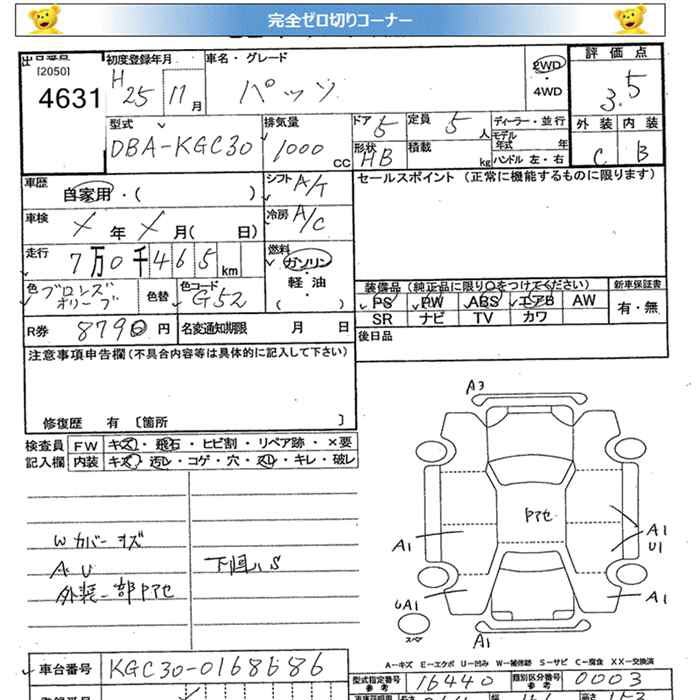 完全ゼロ切りコーナー
[2050]
4631
初度登録年月
H 25 11月
車名・グレード
パッソ
2WD
・
4WD
評価点
3.5
外装 内装
C B
型式
DBA-KGC30
排気量
1000 cc
ドア 5
定員 5 人
形状 HB
積載 kg
ディーラー・並行
モデル年式 年
ハンドル 左・右
車歴
自家用・( )
シフト A/T
セールスポイント (正常に機能するものに限ります)
車検
年 月( 日)
冷房 A/C
走行
7万0千465km
燃料
ガソリン
・
軽油
( )
色 ブロンズオリーブ
色替
色コード G52
装備品 (純正品に限り○をつけてください)
新車保証書
PS PW ABS エアB AW
有・無
SR ナビ TV カワ
R券 8790円
名変通知期限 月 日
後日品
注意事項申告欄 (不具合内容等は具体的に記入して下さい)
修復歴 有 〔箇所 〕
検査員記入欄
FW キズ・飛石・ヒビ割・リペア跡・×要
内装 キズ・汚レ・コゲ・穴・スレ・キレ・破レ
Wカバーキズ
AU
外装一部ヤケ
下回りS
A3
ヤケ
A1
A1
U1
A1
A1
スペア
A1
A-キズ E-エクボ U-凹み W-補修跡 S-サビ C-腐食 XX-交換済
車台番号 KGC30-0168686
型式指定番号
参考
16440
類別区分番号
参考
0003